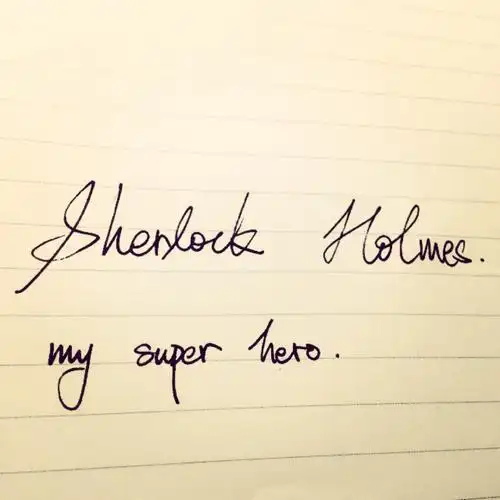 Sherlock Holmes.
my super hero.